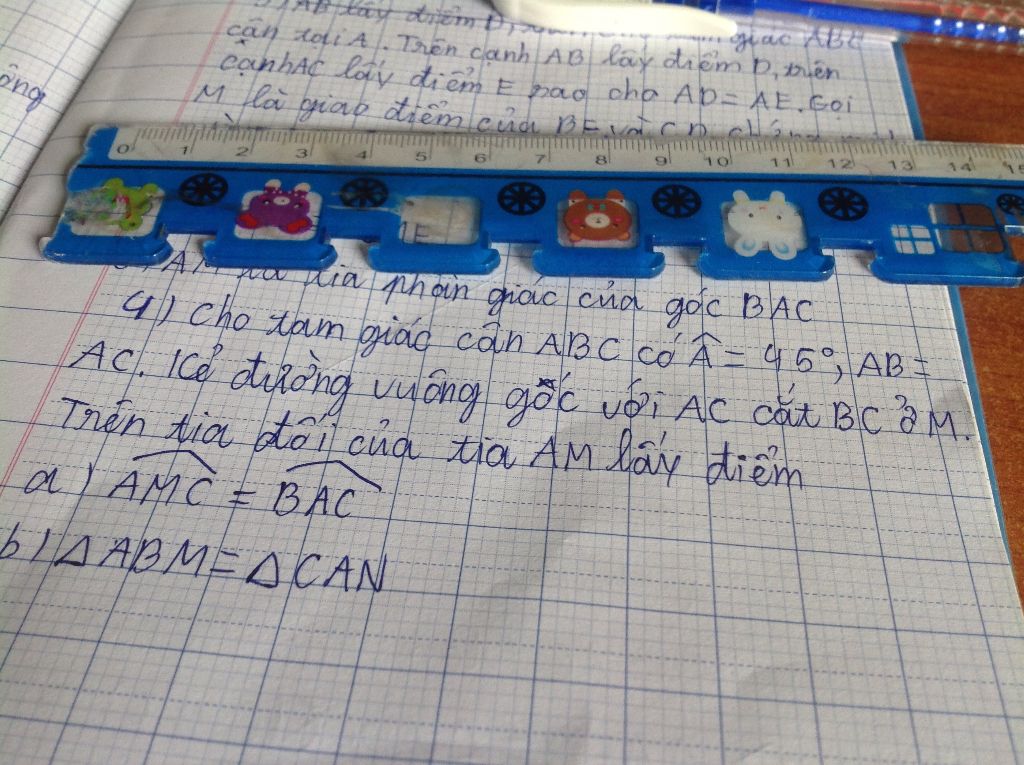 ông
AB lấy điểm D, giác ABC
cân tại A. Trên cạnh AB lấy điểm D, trên
cạnh AC lấy điểm E sao cho AD = AE. Gọi
M là giao điểm của BE và CD.
0 1 2 3 4 5 6 7 8 9 10 11 12 13 14 15
AM là tia phân giác của góc BAC
4) Cho tam giác cân ABC có Â = 45°, AB =
AC. Kẻ đường vuông góc với AC cắt BC ở M.
Trên tia đối của tia AM lấy điểm
a) AMC = BAC
b) △ABM = △CAN